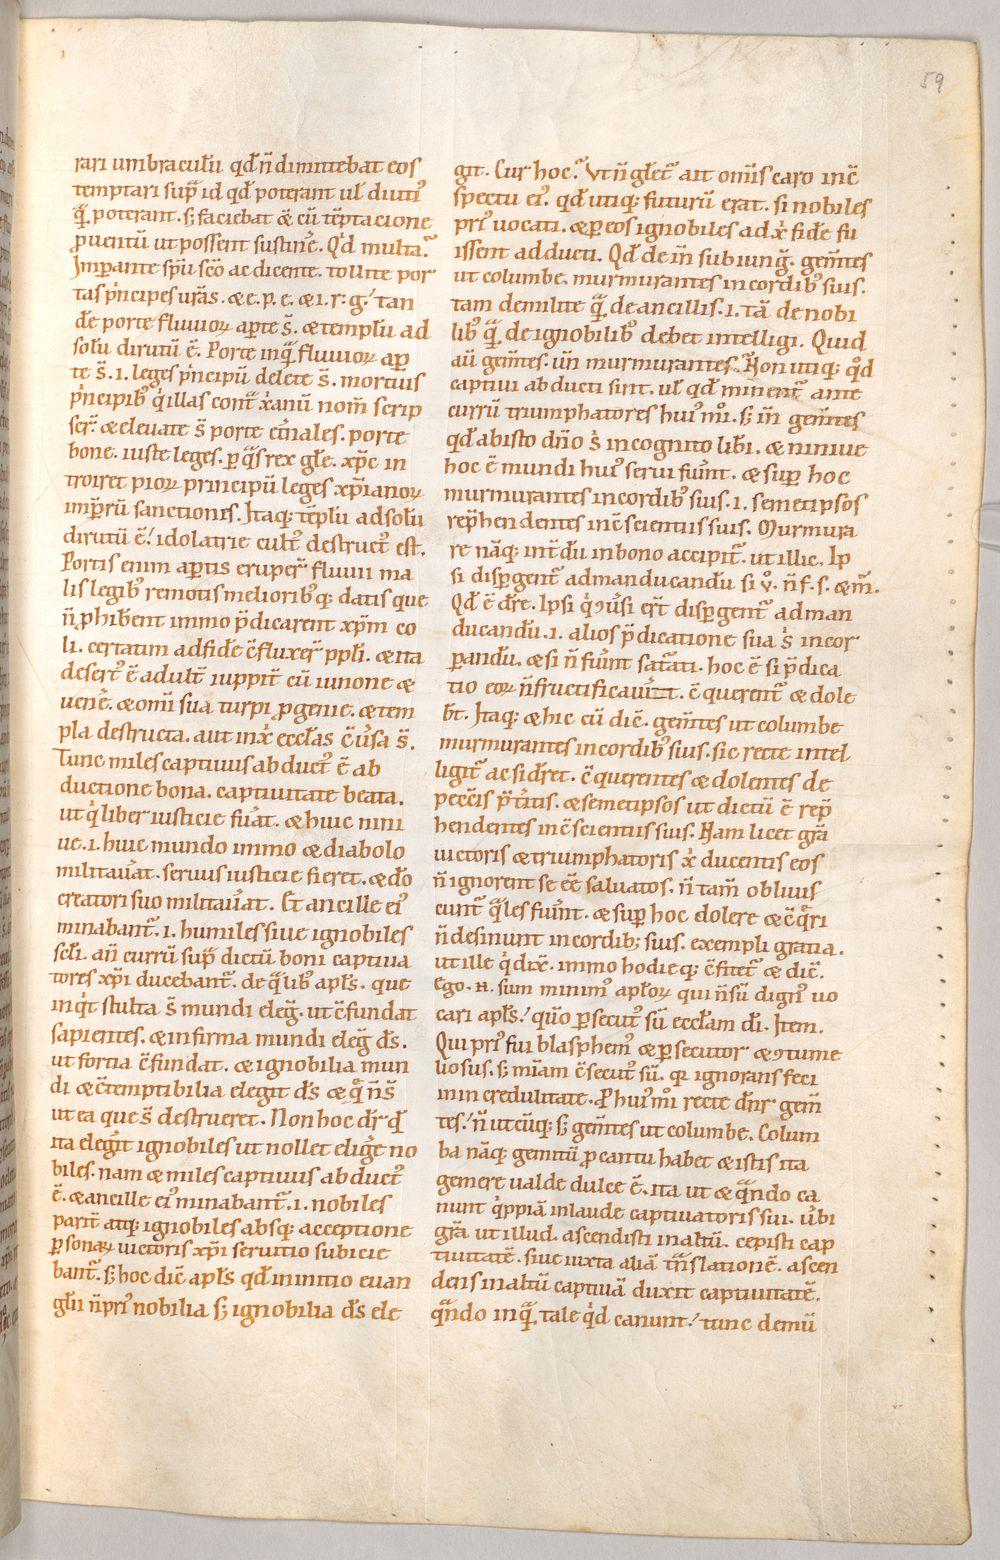 59
rari umbraculu qd̄ n̄ dimittebat eos
temptari sup̄ id qd̄ poterant ul̄ diuti⁹
q̄ poterant. s; faciebat &̄ cū tēptacione
ꝓuentū ut possent sustinēre. Qd̄ multa?
Imp̄ante spū sc̄o ac dicente. tollite por
tas p̄ncipes urās. & e. p. e. & i. r. g. tan
de porte fluuioꝝ ap̄te s̄. & templū ad
solū dirutū ē. Porte inq̄ fluuioꝝ ap
te s̄. i. leges p̄ncipū delete s̄. mortuis
p̄ncipib⁹ q̇ illas cont̄ xp̄ianū nom̄ scrip
ser̄. & eleuate s̄ porte et̄nales. porte
bone. iuste leges. ꝑ q̄s rex gl̄e. xp̄c in
troiret pioꝝ principū leges xp̄ianoꝝ
imp̄rū sanctionis. Itaq; tēplū ad solū
dirutū ē. idolatrie cult⁹ destruct⁹ est.
Portis enim ap̄tis eruper̄ fluuii ma
lis legib⁹ remotis meliorib⁹q; datis que
n̄ ꝓhib̄ent immo p̄dicarent xp̄m co
li. certatim ad fidē ꝯfluxer̄ ppl̄i. & ita
desert⁹ ē adult̄ iuppit̄ cū iunone &
uener̄e. & omī sua turpi ꝓgenie. & tem
pla destructa. aut in xp̄i ecclās ꝯuersa s̄.
Tunc miles captiuus abduct⁹ ē ab
ductione bona. captiuitate beata.
ut q̇ liber iusticie fuāt. & huic nini
ue. i. huic mundo immo & diabolo
militauāt. seruus iusticie fieret. & dō
creatori suo militauāt. Et ancille ei⁹
minabant̄. i. humiles siue ignobiles
scl̄i. an̄ currū sup̄ dictū boni captiua
tores xp̄i ducebant̄. de q̄lib⁹ apl̄s. que
inq̇t stulta s̄ mundi eleḡ. ut ꝯfundat
sapientes. & infirma mundi eleḡ ds̄.
ut fortia ꝯfundat. & ignobilia mun
di & ꝯtemptibilia elegit ds̄ & q̄ n̄ s̄
ut ea que s̄ destrueret. Non hoc dr̄ qd̄
ita elegit ignobiles ut nollet eliḡe no
biles. nam & miles captiuus abduct⁹
ē. & ancille ei⁹ minabant̄. i. nobiles
parit̄ atq; ignobiles absq; acceptione
ꝑsonaꝝ uictoris xp̄i seruitio subicie
bant̄. s; hoc dic̄ apl̄s qd̄ in initio euan
gl̄ii n̄ pri⁹ nobilia s; ignobilia ds̄ ele
git. Cur hoc? Ut n̄ gl̄et̄ ait om̄is caro in ꝯ
spectu ei⁹. qd̄ utiq; futurū erat. si nobiles
pri⁹ uocati. & ꝑ eos ignobiles ad xp̄i fidē fu
issent adducti. Qd̄ dein̄ subiungit̄. gem̄tes
ut columbe. murmurantes in cordib⁹ suis.
tam de milite q̄ de ancillis. i. tā de nobi
lib⁹ q̄ de ignobilib⁹ debet intelligi. Quid
aū gem̄tes. un̄ murmurantes? Non utiq; qd̄
captiui abducti sint. ul̄ qd̄ minent̄ ante
currū triumphatores hui⁹mōi. s; in̄ gem̄tes
qd̄ ab isto dn̄o s̄ incognito lib̄i. & niniue
hoc ē mundi hui⁹ serui fuer̄nt. & sup̄ hoc
murmurantes in cordib⁹ suis. i. semetipsos
rep̄hendentes in ꝯscientiis suis. Murmura
re nāq; int̄dū in bono accipit̄. ut illic. Ip
si disp̄gent̄ ad manducandū si ū. n̄ f. s. & m̄.
Qd̄ ē dr̄e. Ipsi q̇ ꝯuersi er̄t disp̄gent̄ ad man
ducandū. i. alios p̄dicatione sua s̄ incor
porandū. & si n̄ fuer̄nt sat̄ati. hoc ē si p̄dica
tio eoꝝ n̄ fructificauer̄it. ꝯquerent̄ & dole
bt̄. Itaq; & hic cū dic̄. gem̄tes ut columbe
murmurantes in cordib⁹ suis. sic recte intel
ligit̄ ac si dr̄et. ꝯquerentes & dolentes de
peccātis p̄t̄itis. & semetipsos ut dictū ē rep̄
hendentes in ꝯscientiis suis. Nam licet grā
uictoris & triumphatoris xp̄i ducentis eos
n̄ ignorent se eē saluatos. n̄ tam̄ obliuis
cunt̄ q̄les fuer̄nt. & sup̄ hoc dolere & ꝯq̄ri
n̄ desinunt in cordib; suis. exempli gratia.
ut ille q̇ dixit̄. immo hodieq; ꝯfitet̄ & dic̄.
Ego. n. sum minim⁹ apl̄oꝝ qui n̄ sū dign⁹ uo
cari apl̄s. qūo ꝑsecut⁹ sū eccl̄am dī. Item.
Qui pri⁹ fui blasphem⁹ & ꝑsecutor & ꝯtume
liosus. s; mīam ꝯsecut⁹ sū. qr ignorans feci
in incredulitate. ꝓ hui⁹mōi recte dn̄r gem̄
tes. n̄ utcūq; s; gem̄tes ut columbe. Colum
ba nāq; gemitū ꝓ cantu habet & istis ita
gemere ualde dulce ē. ita ut & q̄ndo ca
nunt q̇ppiā in laude captiuatoris sui. u̇bi
grā ut illud. ascendisti in altū. cepisti cap
tiuitatē. siue iuxta aliā t̄nslationē. ascen
dens in altū captiuā duxit captiuitatē.
q̄ndo inq̄ tale qd̄ canunt. tunc demū